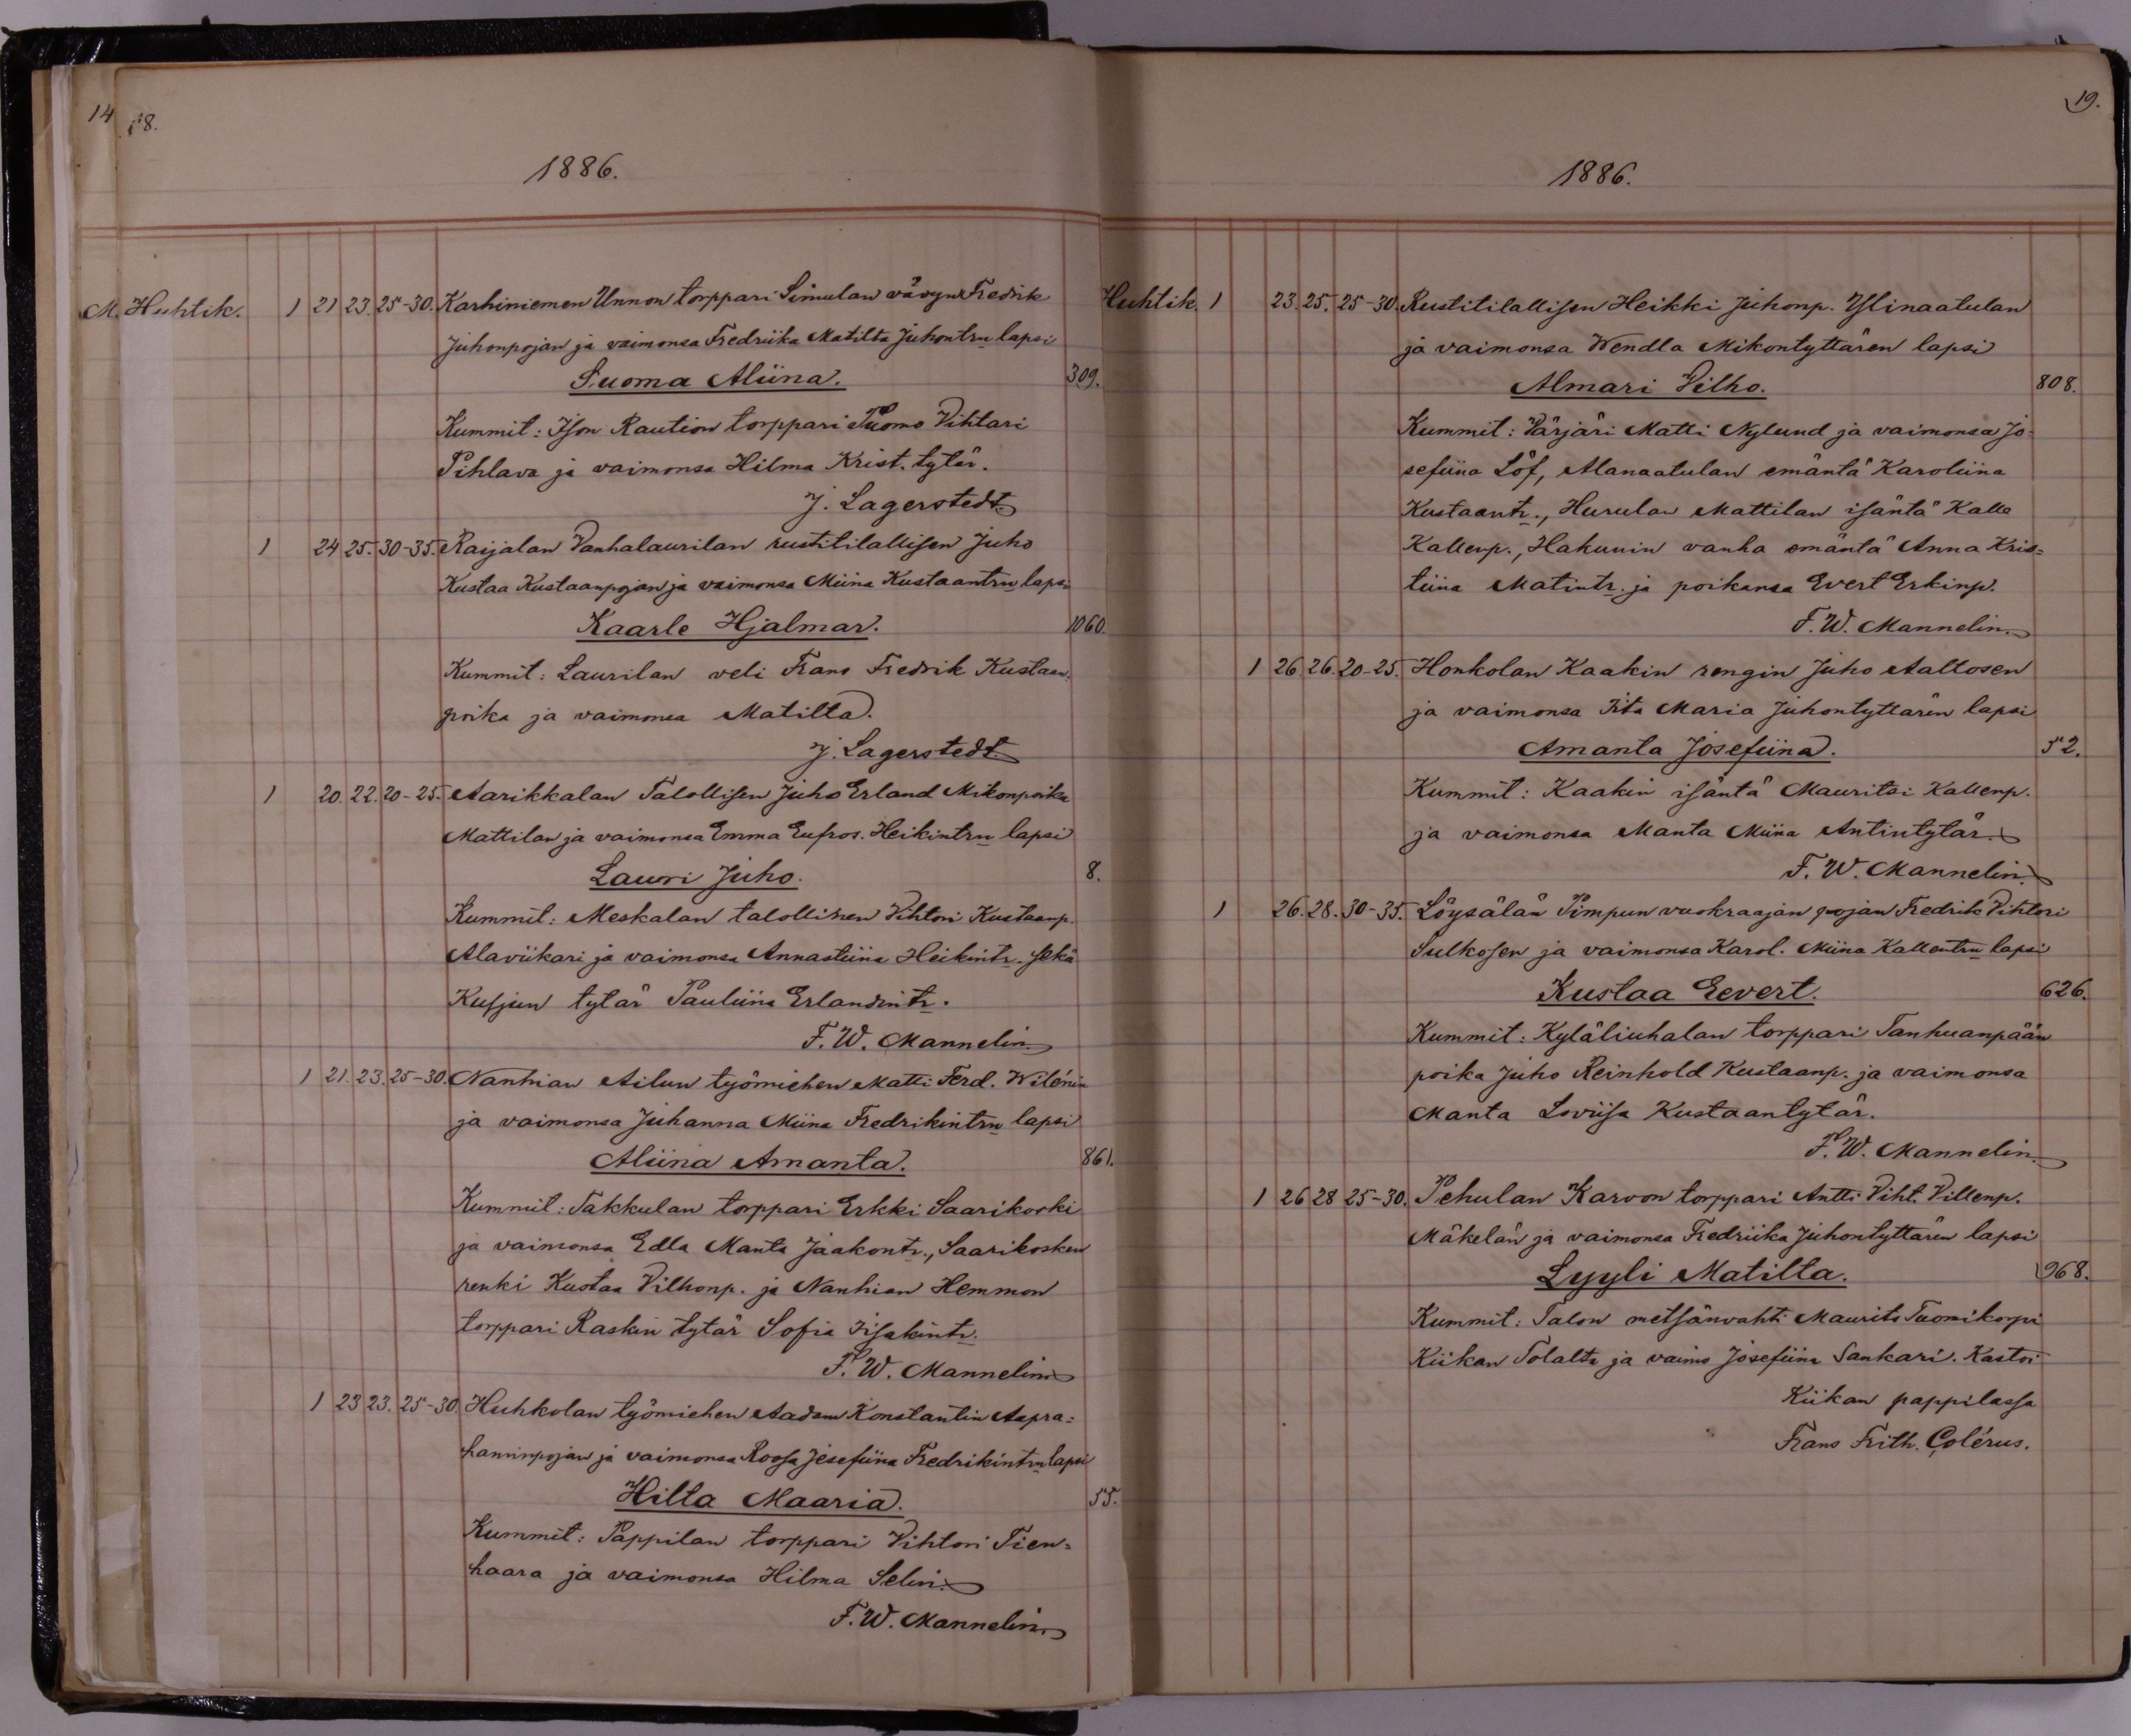 14 18.
1886.
M. Huhtik. 1 21 23. 25-30. Karhiniemen Unnon torppari Simulan vävyn Fredrik
Juhonpojan ja vaimonsa Fredriika Matilta Juhontrn lapsi
Suoma Aliina. 309.
Kummit: Ison Raution torppari Tuomo Vihtari
Pihlava ja vaimonsa Hilma Krist. tytär.
J. Lagerstedt
1 24 25. 30-35. Raijalan Vanhalaurilan rustitilallisen Juho
Kustaa Kustaanpojan ja vaimonsa Miina Kustaantrn lapsi
Kaarle Hjalmar. 1060.
Kummit: Laurilan veli Frans Fredrik Kustaan-
poika ja vaimonsa Matilta.
J. Lagerstedt
1 20. 22. 20-25. Aarikkalan Talollisen Juho Erland Mikonpoika
Mattilan ja vaimonsa Emma Eufros. Heikintrn lapsi
Lauri Juho. 8.
Kummit: Meskalan talollinen Vihtori Kustaanp.
Alaviikari ja vaimonsa Annastiina Heikintr. sekä
tytär Pauliina Erlandintr.
F. W. Mannelin.
1 21. 23. 25-30. Nanhian Ailun työmiehen Matti Ferd. Wilénin
ja vaimonsa Juhanna Miina Fredrikintrn lapsi
Aliina Amanta. 861.
Kummit: Takkulan torppari Erkki Saarikoski
ja vaimonsa Edla Manta Jaakontr., Saarikosken
renki Kustaa Vilhonp. ja Nanhian Hemmon
torppari Raskin tytär Sofia Iisakintr.
F. W. Mannelin
1 23 23. 25-30. Huhkolan työmiehen Aadam Konstantin Aapra=
haminpojan ja vaimonsa Roosa Josefiina Fredrikintrn lapsi
Hilta Maaria. 55.
Kummit: Pappilan torppari Vihtori Tien=
haara ja vaimonsa Hilma Selin.
F. W. Mannelin.
19.
1886.
Huhtik. 1 23. 25. 25-30. Rustitilallisen Heikki Juhonp. Ylinaatulan
ja vaimonsa Wendla Mikontyttären lapsi
Almari Vilho. 808.
Kummit: Värjäri Matti Nylund ja vaimonsa Jo-
sefiina Löf, Alanaatulan emäntä Karoliina
Kustaantr., Hurulan Mattilan isäntä Kalle
Kallenp., Hakunin vanha emäntä Anna Kris=
tiina Matintr. ja poikansa Evert Erkinp.
F. W. Mannelin.
1 26. 26. 20-25. Honkolan Kaakin rengin Juho Aaltosen
ja vaimonsa Iita Maria Juhontyttären lapsi
Amanta Josefiina. 52.
Kummit: Kaakin isäntä Mauritsi Kallenp.
ja vaimonsa Manta Miina Antintytär.
F. W. Mannelin.
1 26. 28. 30-35. Löysälän Pimpun vuokraajan pojan Fredrik Vihtori
Sulkosen ja vaimonsa Karol. Miina Kallentrn lapsi
Kustaa Eevert. 626.
Kummit: Kyläliuhalan torppari Tanhuanpään
poika Juho Reinhold Kustaanp. ja vaimonsa
Manta Loviisa Kustaantytär.
F. W. Mannelin.
1 26 28 25-30. Pehulan Karvon torppari Antti Viht. Villenp.
Mäkelän ja vaimonsa Fredriika Juhontyttären lapsi
Lyyli Matilta. 968.
Kummit: Talon metsänvahti Maurits Tuomikorpi
Kiikan Tolalta ja vaimo Josefiina Sankari. Kastoi
Kiikan pappilassa
Frans Frith. Colérus.